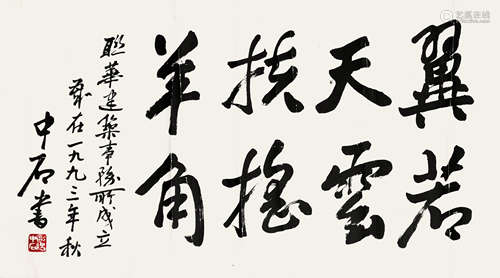 翼若
天雲
扶搖
羊角
聯華建築事務所成立
歲在一九九三年秋
中石書